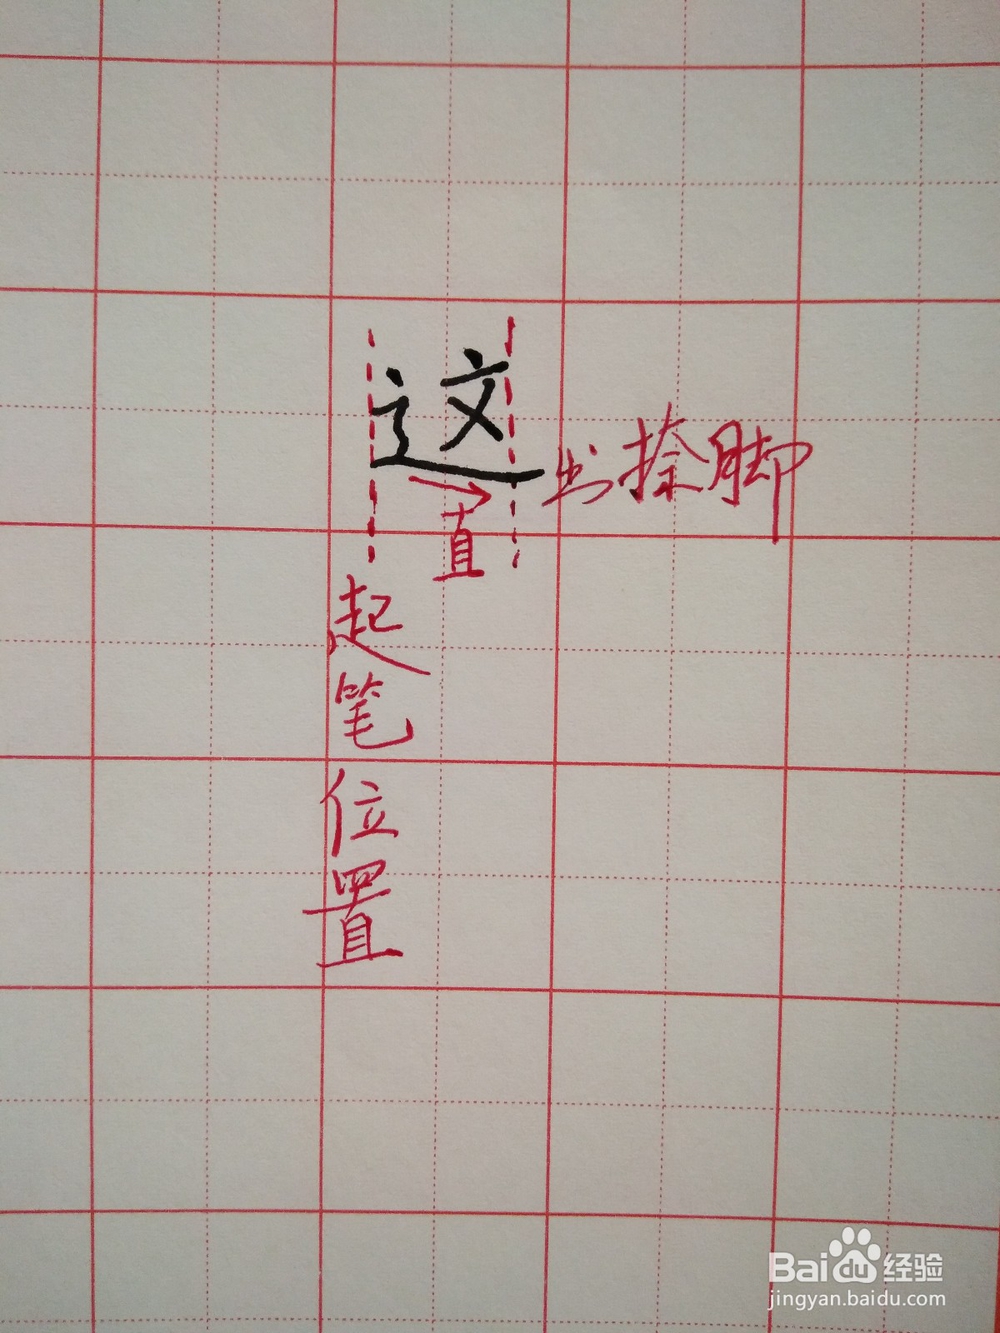 这
出捺脚
直
起笔位置
Baidu经验
jingyan.baidu.com